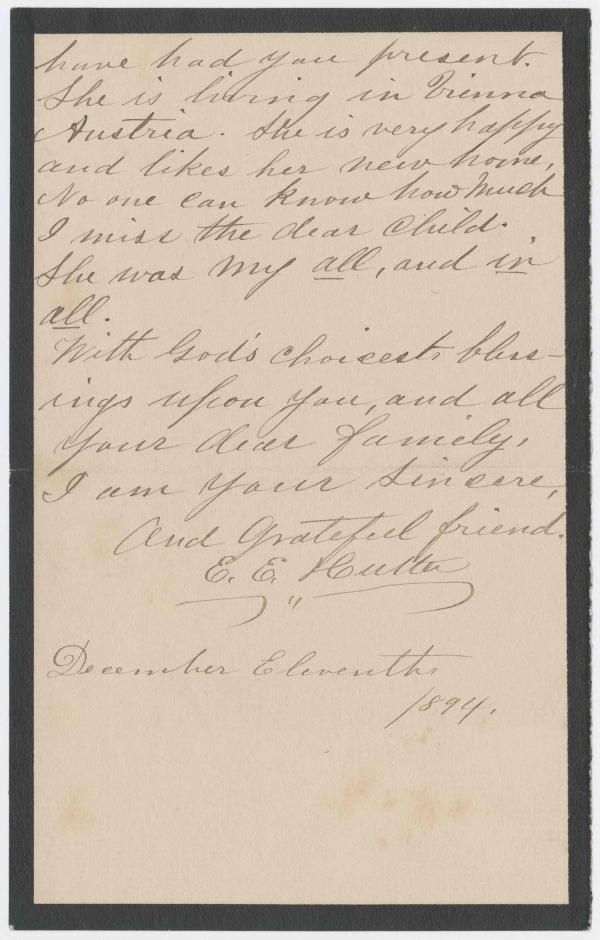 have had you present.
She is living in Vienna
Austria. She is very happy
and likes her new home,
No one can know how much
I miss the dear Child.
She was my all, and in
all.
With God's choicest bless-
ings upon you, and all
your dear family,
I am your sincere,
And Grateful friend.
E. E. Hutter
"
December Eleventh,
1894.